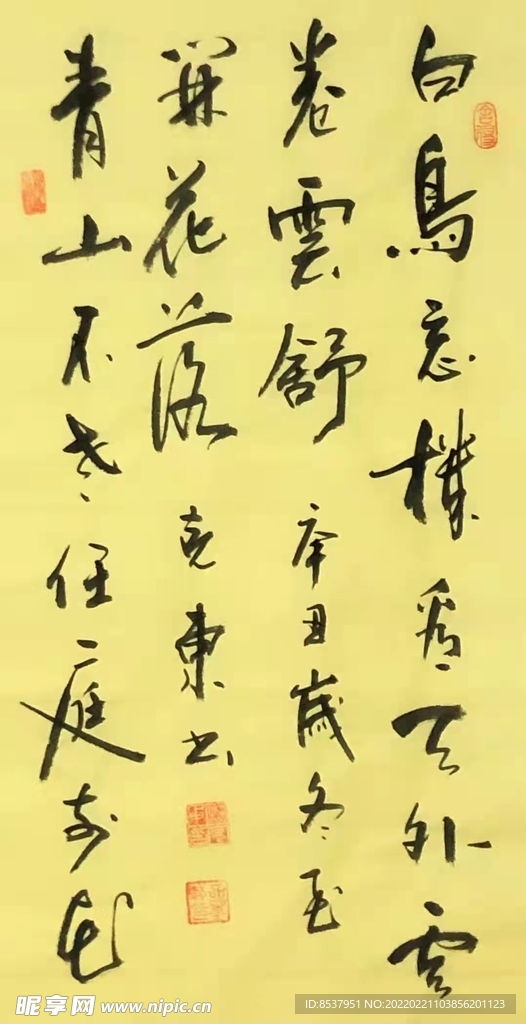 白鳥忘機看天外雲
卷雲舒
辛丑歲冬至
青山不老任庭前花
開花落
克東書
昵享网 www.nipic.cn
ID:8537951 NO:20220221103856201123